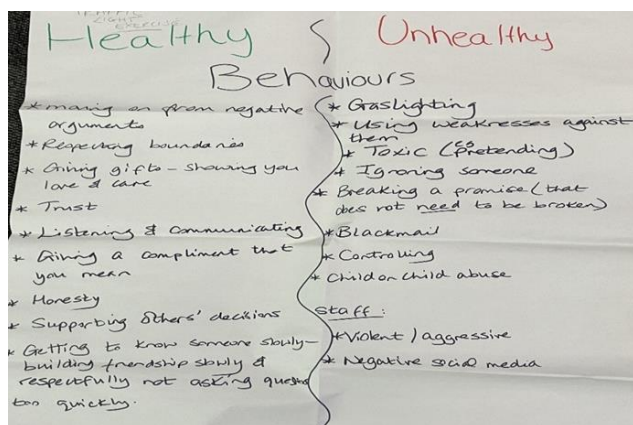 TRAFFIC
LIGHT
EXERCISE
Healthy
Unhealthy
Behaviours
* moving on from negative
arguments
* Respecting boundaries
* Giving gifts - showing you
love & care
* Trust
* Listening & communicating
* Giving a compliment that
you mean
* Honesty
* Supporting others' decisions
* Getting to know someone slowly-
building friendship slowly &
respectfully not asking
too quickly.
* Gaslighting
* Using weaknesses against
them
* Toxic (pretending)
* Ignoring someone
* Breaking a promise (that
does not need to be broken)
* Blackmail
* Controlling
* Child on child abuse
Staff:
* Violent / aggressive
* Negative social media